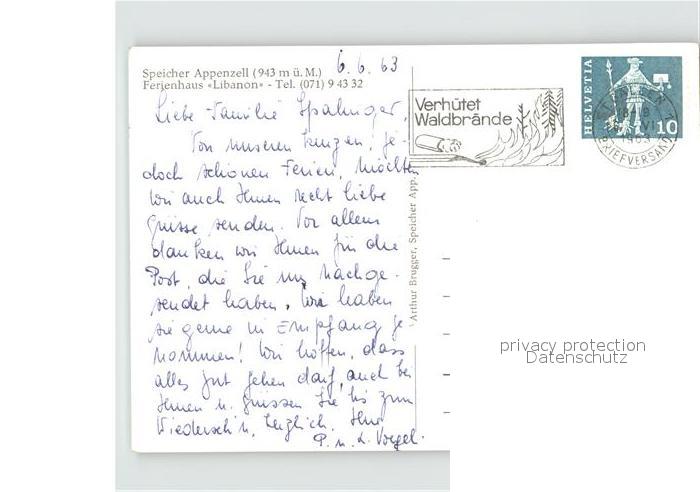 6.6.63
Speicher Appenzell (943 m ü. M.)
Ferienhaus «Libanon» - Tel. (071) 9 43 32
Liebe Familie Spahnger,
Von unseren kurzen, je-
doch schönen Ferien, möchten
wir auch Ihnen recht liebe
Grüsse senden. Vor allem
danken wir Ihnen für die
Post, die Sie uns nachge-
sendet haben. Wir haben
sie gerne in Empfang ge
nommen! Wir hoffen, dass
alles gut gehen darf, auch bei
Ihnen u. grüssen Sie bis zum
Wiederseh'n, herzlich, Ihre
P. u. L. Vogel.
Arthur Brugger, Speicher App.
Verhütet
Waldbrände
HELVETIA
10
ST. GALLEN
1963
BRIEFVERSAND
privacy protection
Datenschutz